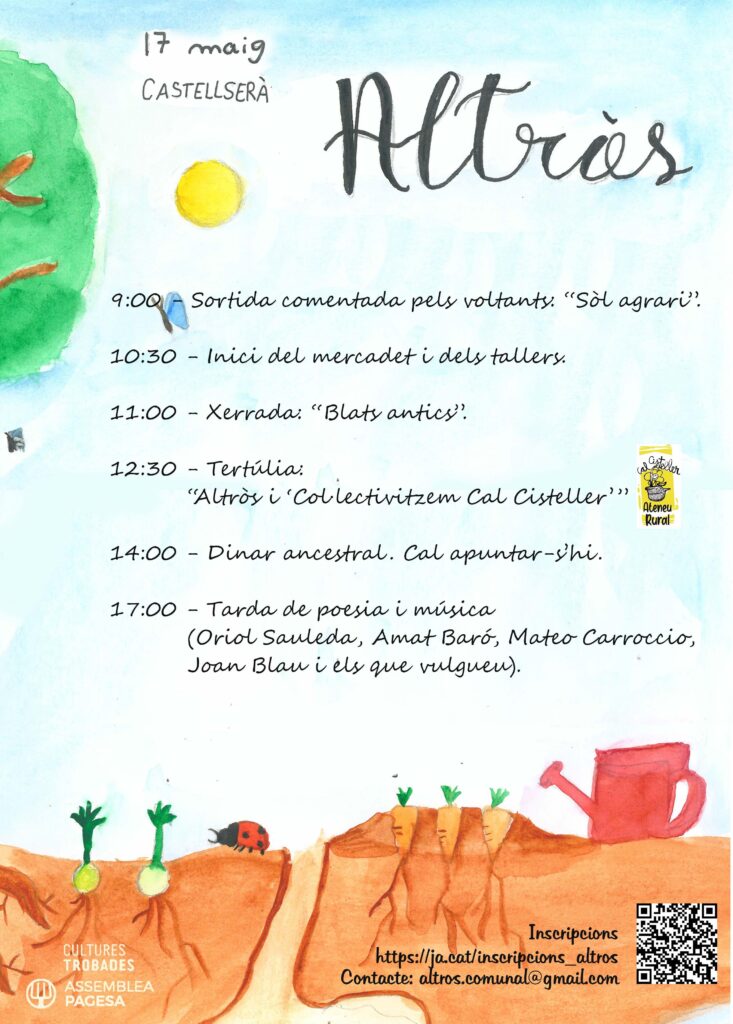 17 maig
CASTELLSERÀ
Altròs
9:00 - Sortida comentada pels voltants: “Sòl agrari”.
10:30 - Inici del mercadet i dels tallers.
11:00 - Xerrada: “Blats antics”.
12:30 - Tertúlia:
“Altròs i ‘Col·lectivitzem Cal Cisteller’”
Cal Cisteller
Ateneu
Rural
14:00 - Dinar ancestral. Cal apuntar-s'hi.
17:00 - Tarda de poesia i música
(Oriol Sauleda, Amat Baró, Mateo Carroccio,
Joan Blau i els que vulgueu).
Inscripcions
https://ja.cat/inscripcions_altros
Contacte: altros.comunal@gmail.com
CULTURES
TROBADES
ASSEMBLEA
PAGESA